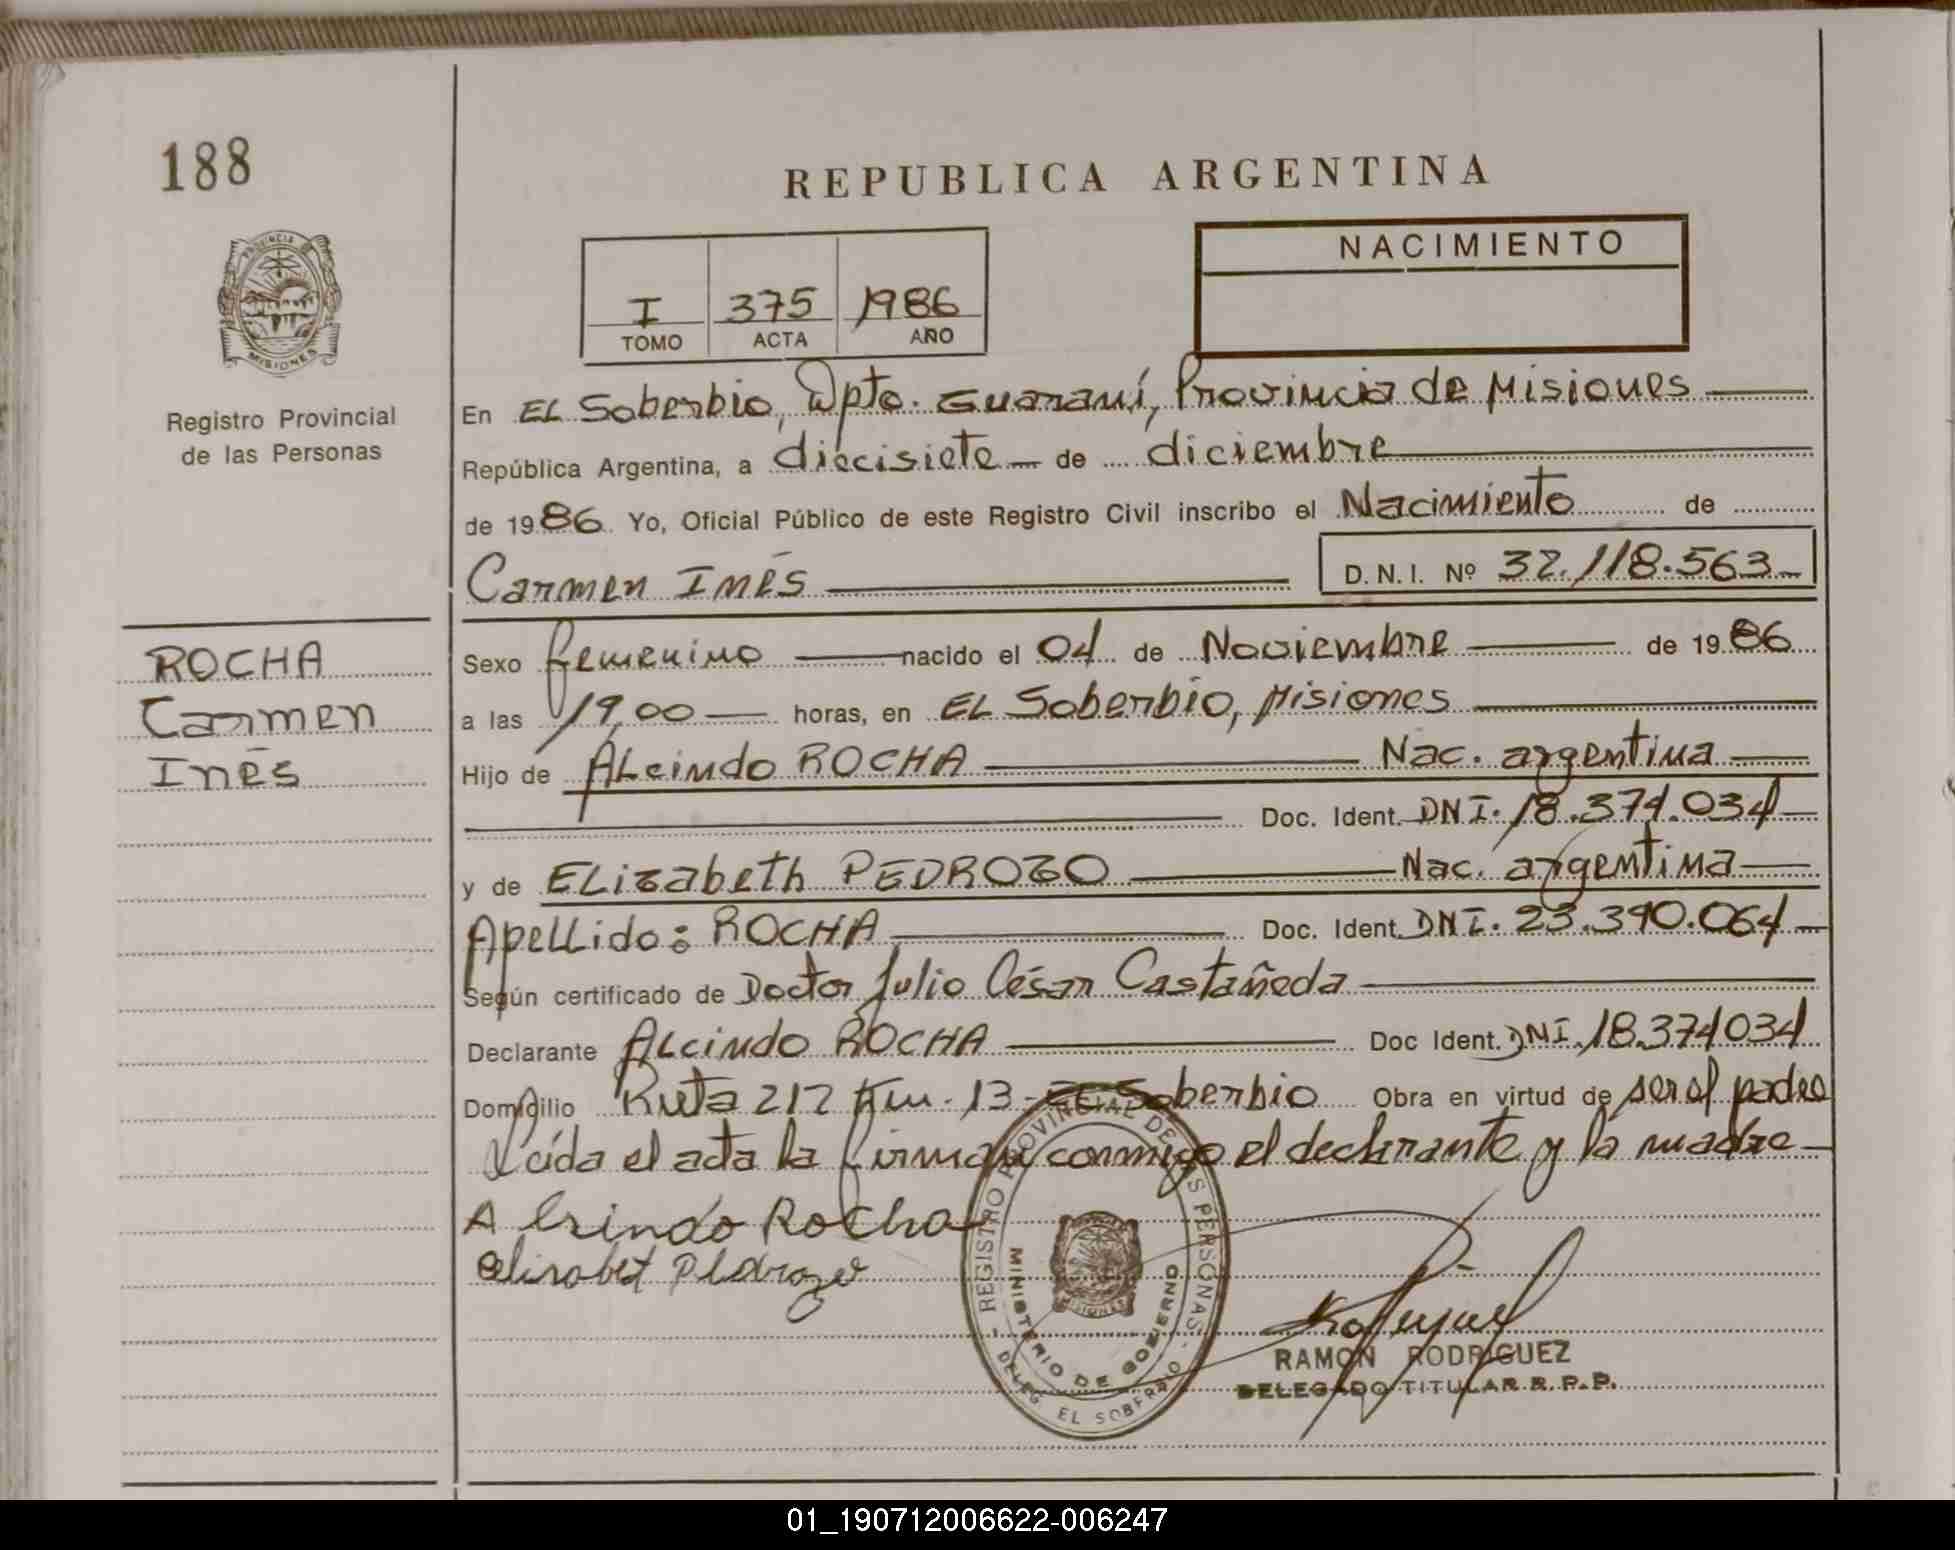 188
REPUBLICA ARGENTINA
PROVINCIA
MISIONES
Registro Provincial
de las Personas
I 375 1986
TOMO ACTA AÑO
NACIMIENTO
En EL Soberbio, Dpto. Guaraní, Provincia de Misiones
República Argentina, a diecisiete de diciembre
de 1986 Yo, Oficial Público de este Registro Civil inscribo el Nacimiento de
Carmen Inés D.N.I. Nº 32.118.563
ROCHA
Carmen
Inés
Sexo femenino nacido el 04 de Noviembre de 1986
a las 19,00 horas, en EL Soberbio, Misiones
Hijo de ALcindo ROCHA Nac. argentina
Doc. Ident. DNI. 18.374.034
y de ELizabeth PEDROZO Nac. argentina
ApeLLido: ROCHA Doc. Ident. DNI. 23.390.064
Según certificado de Doctor Julio César Castañeda
Declarante ALcindo ROCHA Doc Ident. DNI. 18.374034
Domicilio Ruta 212 Km. 13 - EL Soberbio Obra en virtud de ser el padre
Leída el acta la firman conmigo el declarante y la madre
Alcindo Rocha
elisabet Pedrozo
REGISTRO PROVINCIAL DE LAS PERSONAS
MINISTERIO DE GOBIERNO
MISIONES
DELEG. EL SOBERBIO
RAMON RODRIGUEZ
DELEGADO TITULAR R.P.P.
01_190712006622-006247